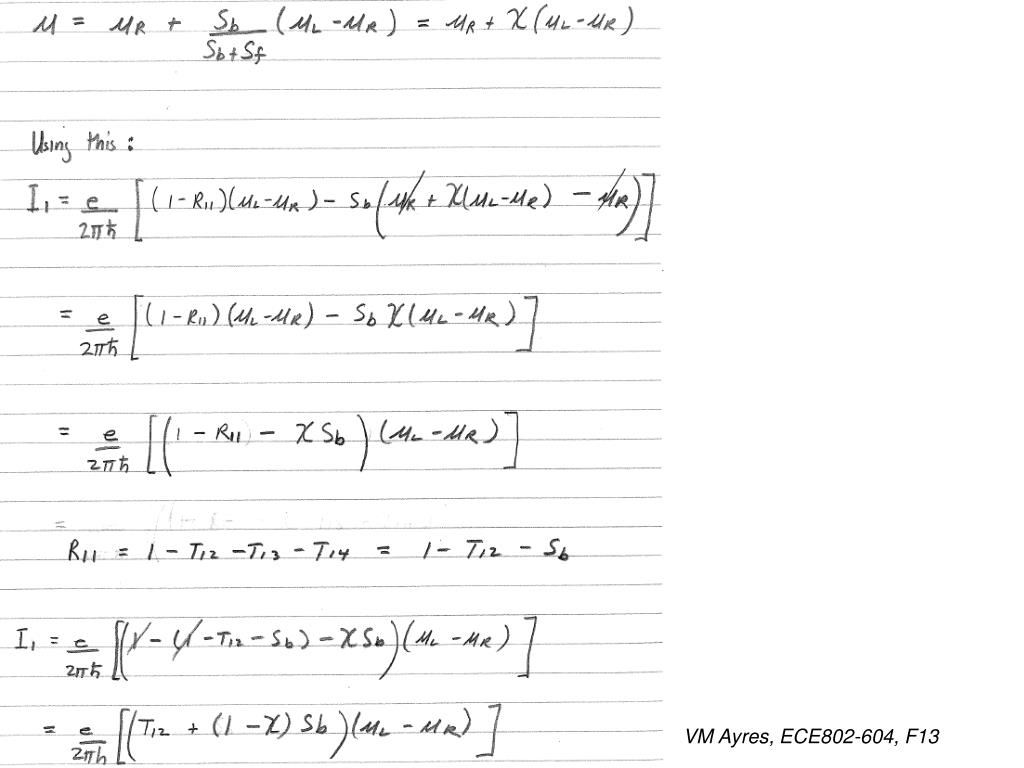 μ = μR + Sb/(Sb+Sf) (μL-μR) = μR + χ(μL-μR)
Using this:
I1 = e/2πħ [(1-R11)(μL-μR) - Sb(μR + χ(μL-μR) - μR)]
= e/2πħ [(1-R11)(μL-μR) - Sb χ(μL-μR)]
= e/2πħ [(1 - R11 - χSb)(μL-μR)]
=
R11 = 1 - T12 - T13 - T14 = 1 - T12 - Sb
I1 = e/2πħ [(1 - (1 - T12 - Sb) - χSb)(μL-μR)]
= e/2πh [(T12 + (1-χ)Sb)(μL-μR)]
VM Ayres, ECE802-604, F13